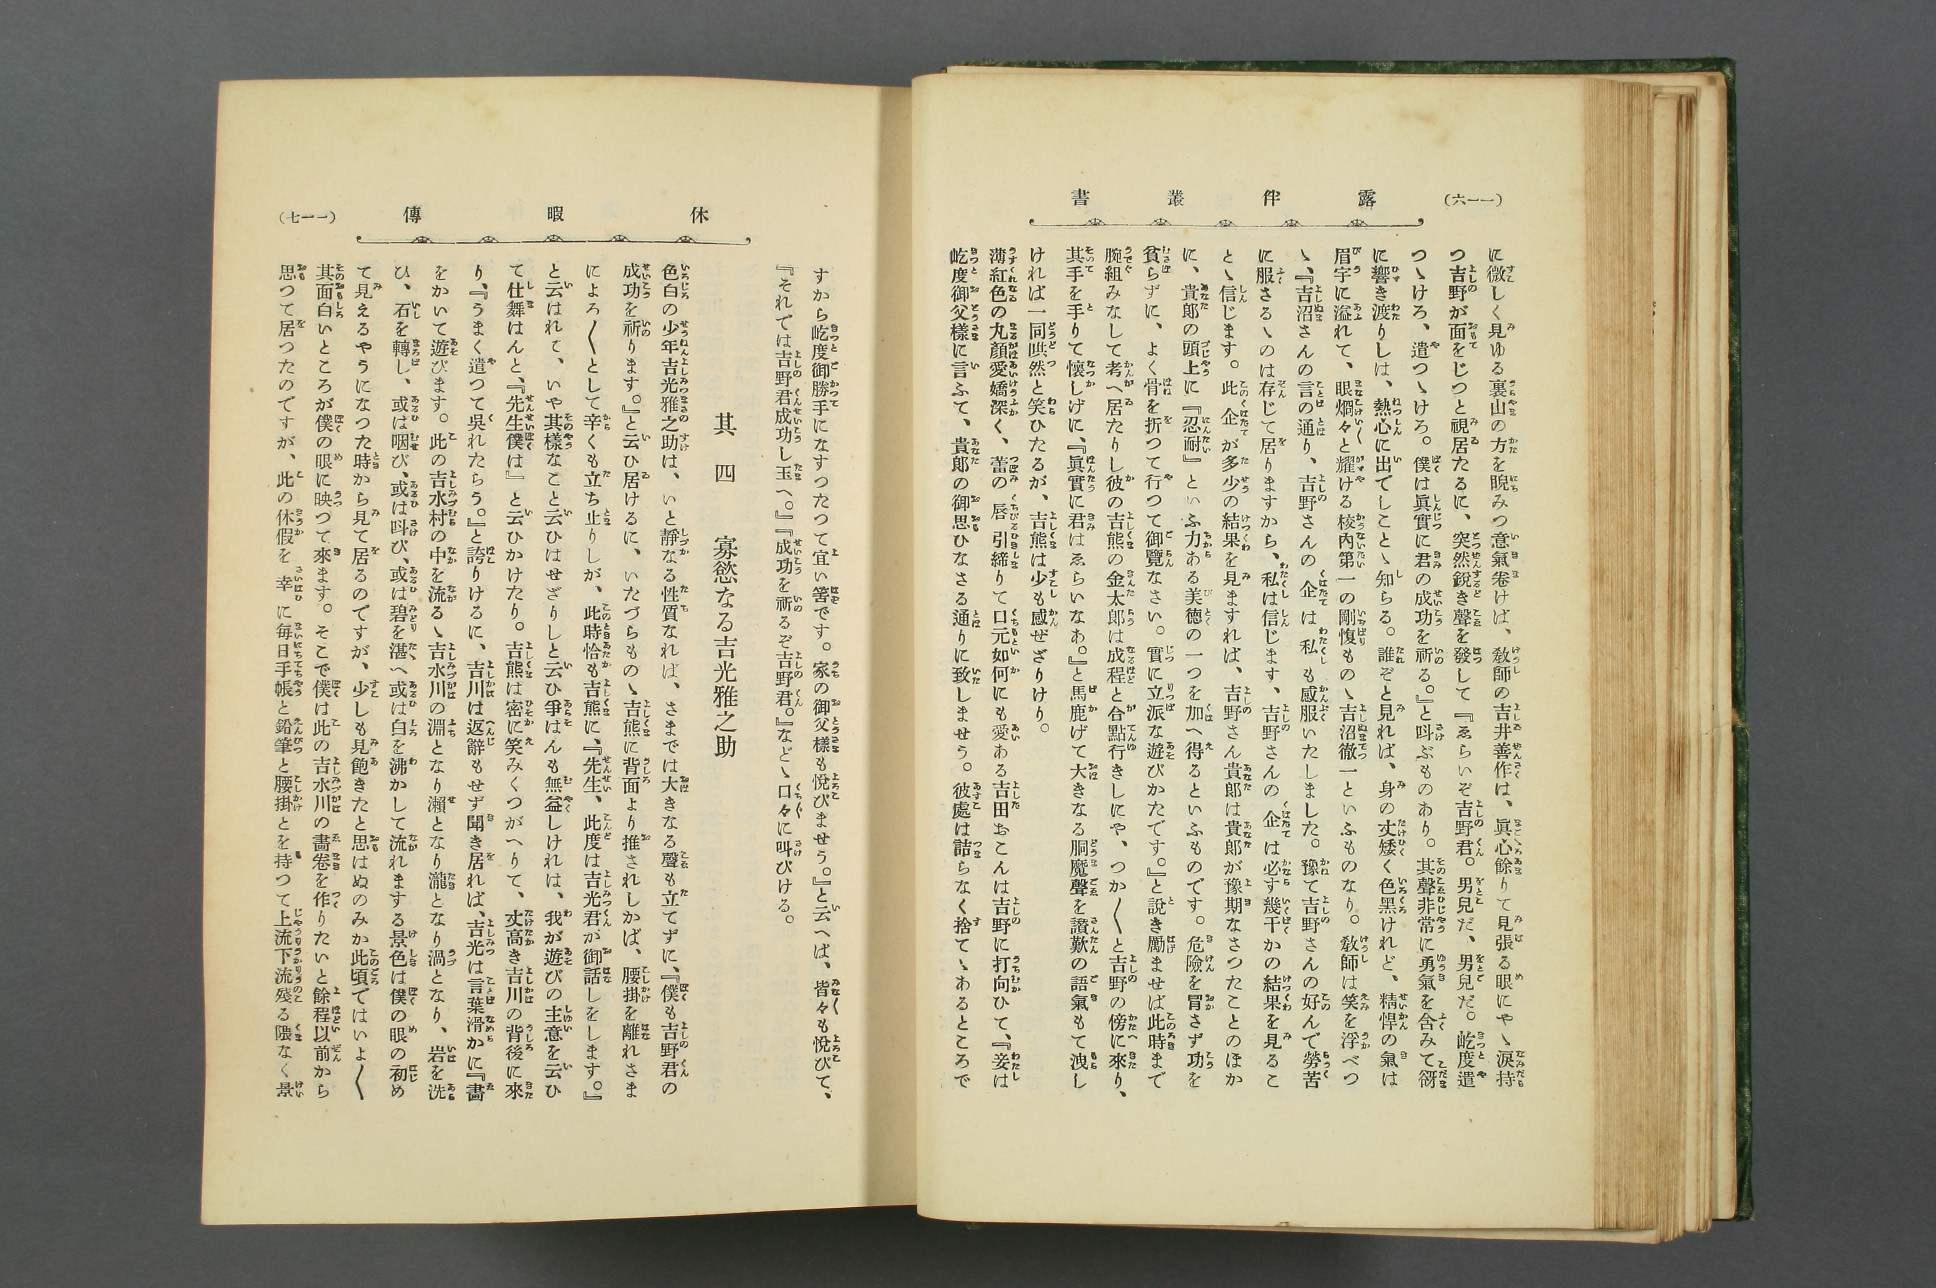 (一一六)
露伴叢書
に微しく見ゆる裏山の方を睨みつ意氣卷けば、敎師の吉井善作は、眞心餘りて見張る眼にやゝ淚持
つ吉野が面をじつと視居たるに、突然銳き聲を發して『ゑらいぞ吉野君。男兒だ、男兒だ。屹度遣
つゝけろ、遣つゝけろ。僕は眞實に君の成功を祈る。』と呌ぶものあり。其聲非常に勇氣を含みて谺
に響き渡りしは、熱心に出でしことゝ知らる。誰ぞと見れば、身の丈矮く色黑けれど、精悍の氣は
眉宇に溢れて、眼爛々と耀ける校內第一の剛愎ものゝ吉沼徹一といふものなり。敎師は笑を浮べつ
ゝ、『吉沼さんの言の通り、吉野さんの企は私も感服いたしました。豫て吉野さんの好んで勞苦
に服さるゝのは存じて居りますから、私は信じます、吉野さんの企は必す幾干かの結果を見るこ
とゝ信じます。此企が多少の結果を見ますれば、吉野さん貴郞は貴郞が豫期なさつたことのほか
に、貴郞の頭上に『忍耐』といふ力ある美德の一つを加へ得るといふものです。危險を冒さず功を
貧らずに、よく骨を折つて行つて御覽なさい。實に立派な遊びかたです。』と說き勵ませば此時まで
腕組みなして考へ居たりし彼の吉熊の金太郞は成程と合點行きしにや、つか〱と吉野の傍に來り、
其手を手りて懷しげに、『眞實に君はゑらいなあ。』と馬鹿げて大きなる胴魔聲を證歎の語氣もて洩し
ければ一同哄然と笑ひたるが、吉熊は少も感ぜざりけり。
薄紅色の丸顏愛嬌深く、蕾の唇引締りて口元如何にも愛ある吉田おこんは吉野に打向ひて、『妾は
屹度御父樣に言ふて、貴郞の御思ひなさる通りに致しませう。彼處は詰らなく捨てゝあるところで
休暇傳
(一一七)
すから屹度御勝手になすつたつて宜い筈です。家の御父樣も悅びませう。』と云へば、皆々も悅びて、
『それでは吉野君成功し玉へ。』『成功を祈るぞ吉野君。』などゝ口々に叫びける。
其四 寡慾なる吉光雅之助
色白の少年吉光雅之助は、いと靜なる性質なれば、さまでは大きなる聲も立てずに、『僕も吉野君の
成功を祈ります。』と云ひ居けるに、いたづらものゝ吉熊に背面より推されしかば、腰掛を離れさま
によろ〱として辛くも立ち止りしが、此時恰も吉熊に、『先生、此度は吉光君が御話しをします。』
と云はれて、いや其樣なこと云ひはせざりしと云ひ爭はんも無益しければ、我が遊びの主意を云ひ
て仕舞はんと、『先生僕は』と云ひかけたり。吉熊は密に笑みくつがへりて、丈高き吉川の背後に來
り、『うまく遣つて吳れたらう。』と誇りけるに、吉川は返辭もせず聞き居れば、吉光は言葉滑かに『畫
をかいて遊びます。此の吉水村の中を流るゝ吉水川の淵となり瀨となり瀧となり渦となり、岩を洗
ひ、石を轉し、或は咽び、或は呌び、或は碧を湛へ或は白を沸かして流れまする景色は僕の眼の初め
て見えるやうになつた時から見て居るのですが、少しも見飽きたと思はぬのみか此頃ではいよ〱
其面白いところが僕の眼に映つて來ます。そこで僕は此の吉水川の畵卷を作りたいと餘程以前から
思つて居つたのですが、此の休假を幸に每日手帳と鉛筆と腰掛とを持つて上流下流殘る隈なく景